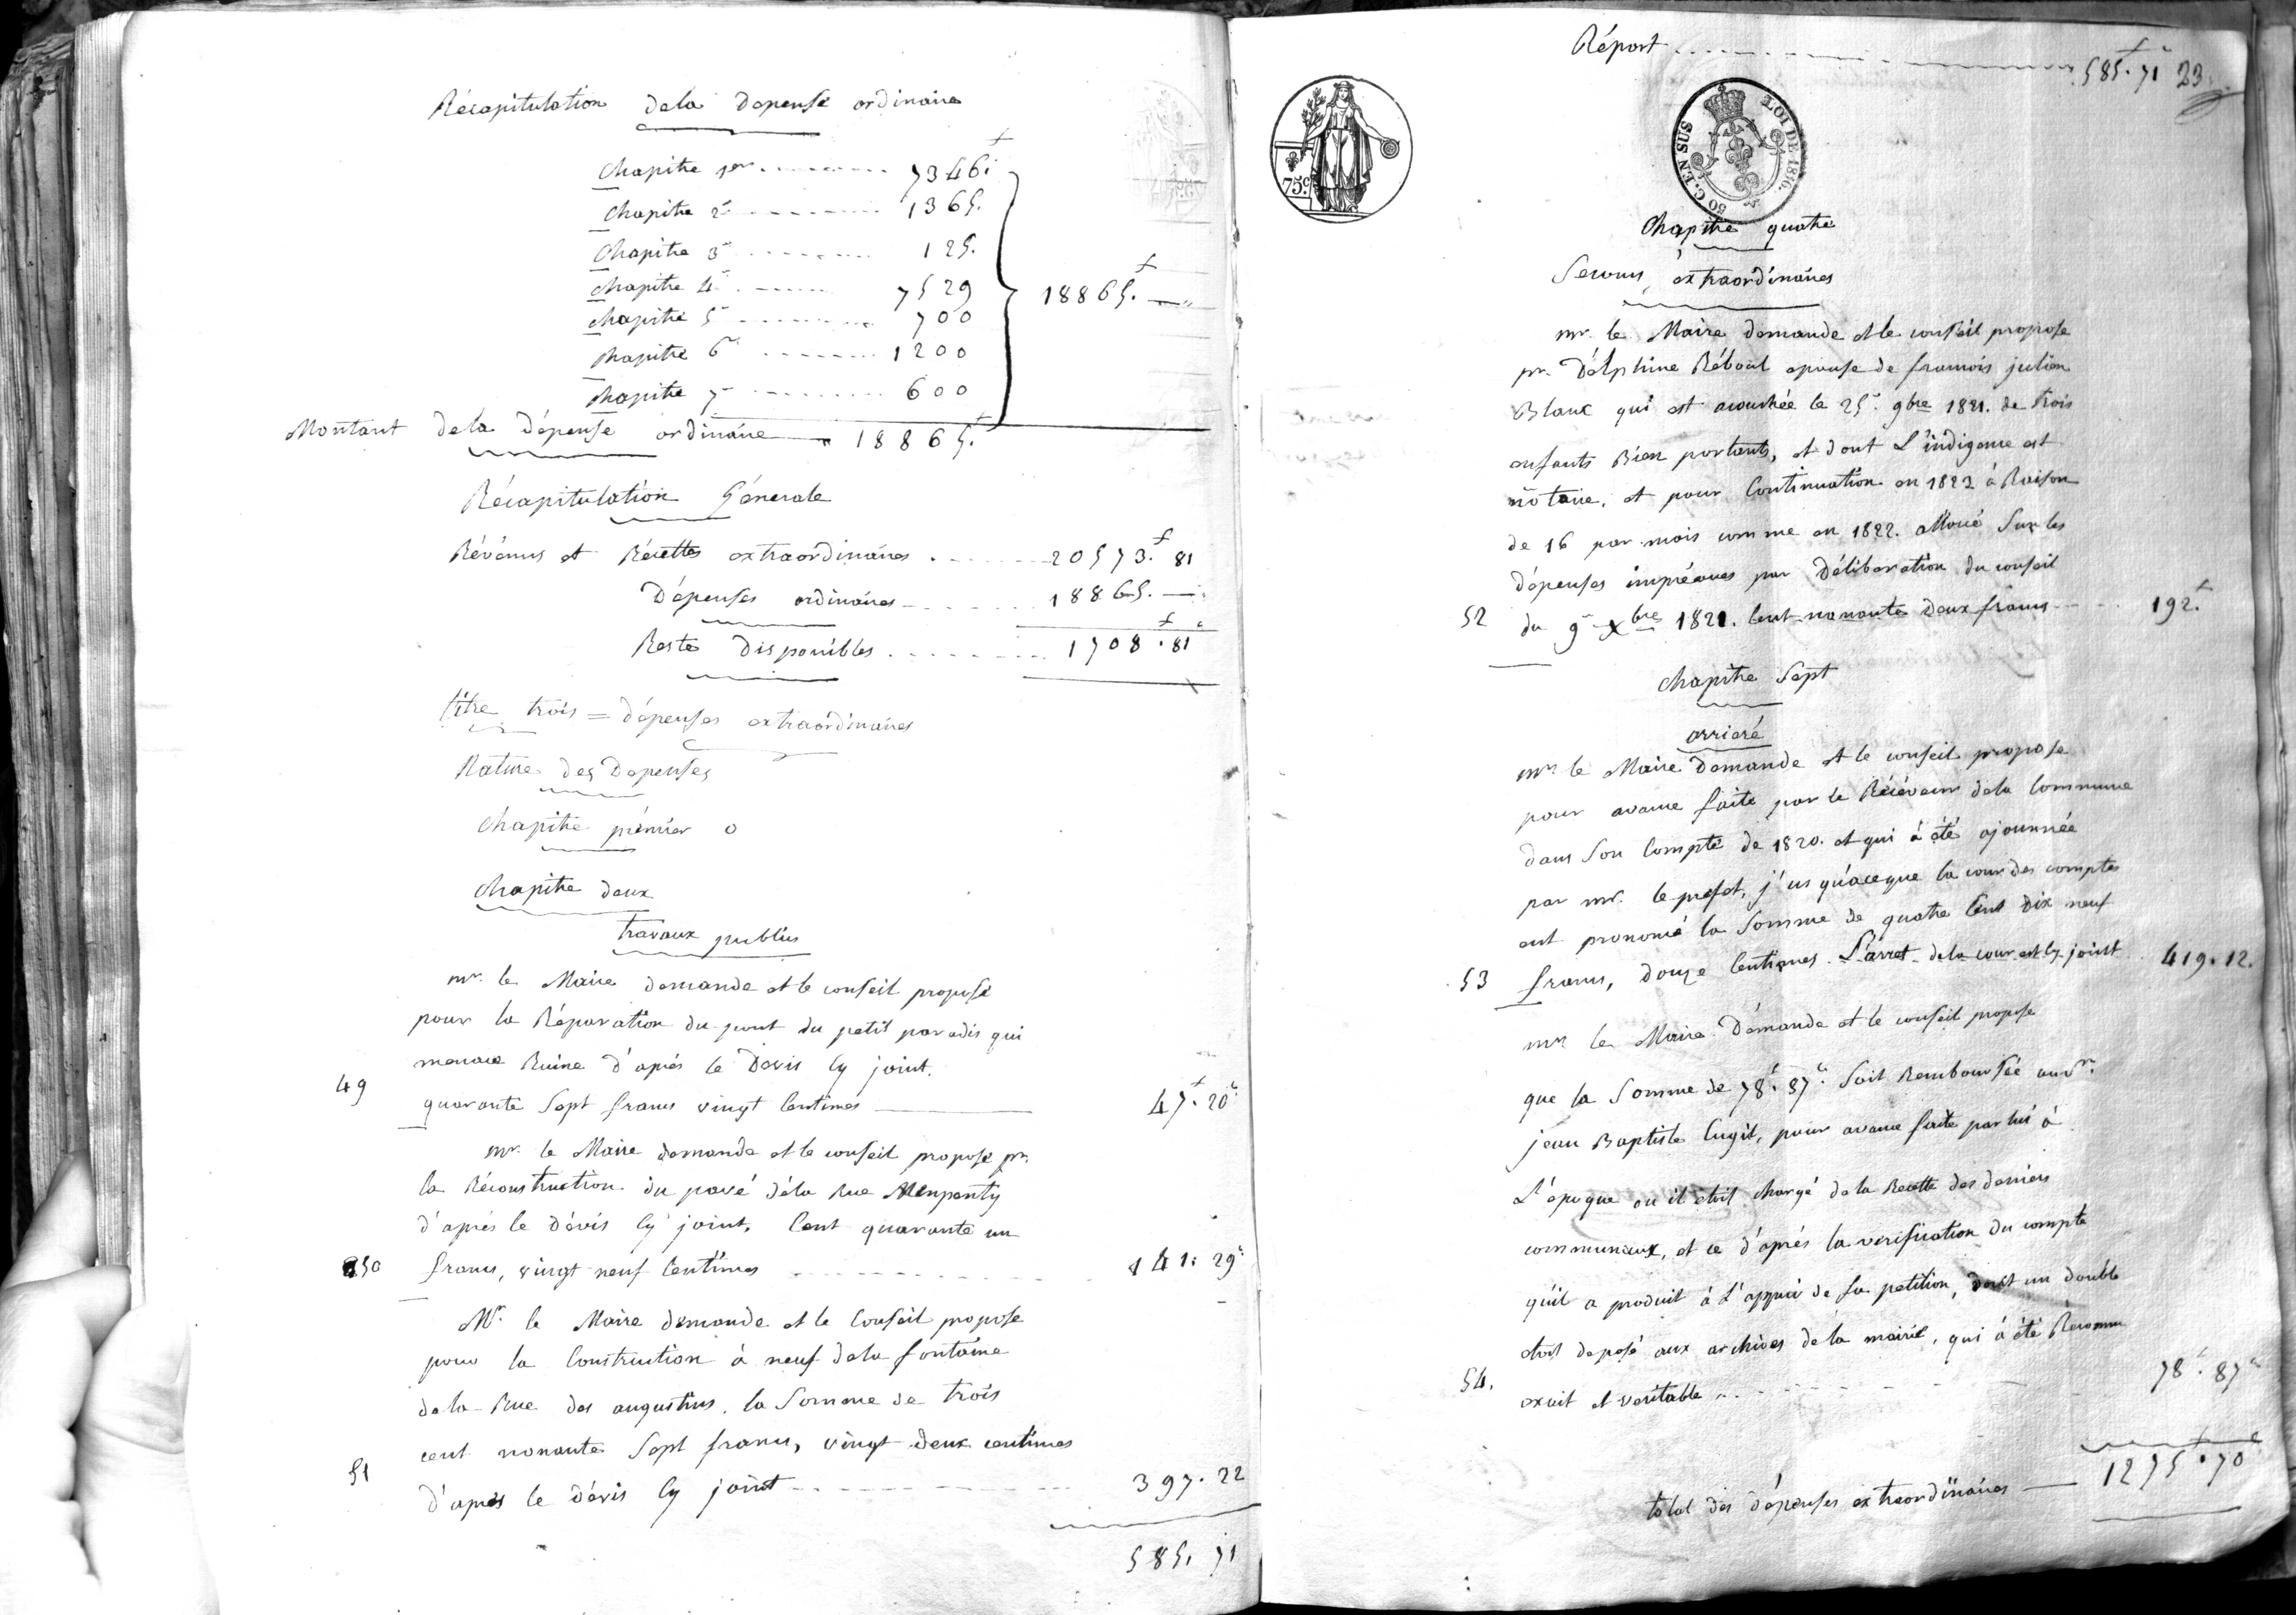 Récapitulation dela depense ordinaire
Chapitre 1er ......... 7346f
Chapitre 2e ......... 1365.
Chapitre 3e ......... 125.
Chapitre 4e ......... 7529
Chapitre 5e ......... 700
Chapitre 6e ......... 1200
Chapitre 7e ......... 600
18865.f — "
Montant dela Dépense ordinaire — 18865.f
Récapitulation Génerale
Révénus et Récettes extraordinaires ...... 20573.f 81
Dépenses ordinaires ...... 18865. —
Reste Disponibles ...... 1708.f 81c
titre trois = dépenses extraordinaires
Nature des Depenses
Chapitre prémier 0
Chapitre deux
travaux publics
mr. le Maire demande et le conseil propose
pour la Réparation du pont du petit paradis qui
menace Ruine d'aprés le Devis Cy joint.
49 quarante Sept francs vingt Centimes — 47.f 20c
mr. le Maire demande et le conseil propose pr.
la Réconstruction du pavé déla Rue Menpenty
d'aprés le Dévis Cy joint, Cent quarante un
50 francs, vingt neuf Centimes ...... 141: 29c
Mr. le Maire demande et le Conseil propose
pour la Construction à neuf dela fontaine
dela Rue des augustins, la Somme de trois
cent nonante Sept francs, vingt deux centimes
51 d'aprés le dévis Cy joint ...... 397. 22
585. 71
Réport ...... 585.f 71c
23
75c.
50 C. EN SUS
LOI DE 1816.
Chapitre quatre
Secours extraordinaires
mr. le Maire demande et le conseil propose
pr. Délphine Réboul epouse de francois julien
Blanc qui est acouchée le 25e. 9bre 1821. de trois
enfants Bien portants, et dont L'indigence est
notoire, et pour Continuation en 1823 à Raison
de 16 par mois comme en 1822. alloué Sur les
dépenses imprévues par Déliberation du conseil
52 du 9e Xbre 1821. Cent nonante Deux francs ... 192.f
Chapitre Sept
arrieré
mr. le Maire Demande et le conseil propose
pour avance faite par le Récéveur dela Commune
dans Son Compte de 1820. et qui à été ajournée
par mr. le prefet, j'us qu'aceque la cour des comptes
eut prononcé la Somme de quatre Cent dix neuf
53 francs, douze Centimes. L'arret dela cour est cy joint 419. 12.
mr. le Maire Démande et le conseil propose
que la Somme de 78f. 87c. Soit Remboursée au Sr.
jean Baptiste Cugit, pour avance faite par lui à
L'époque ou il etoit chargé dela Recette des deniers
communaux, et ce d'aprés la verification du compte
qu'il a produit à L'appui de Sa petition, dont un double
etoit deposé aux archives déla mairie, qui à été Réconnu
54. exact et veritable ...... 78f. 87c
total des dépenses extraordinaires — 1275.f 70c